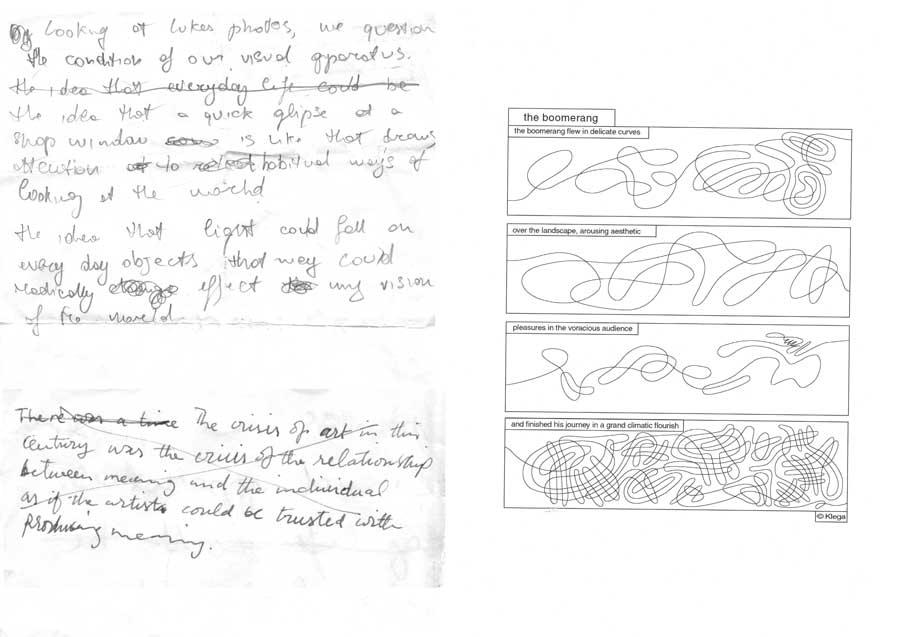 By looking at lukes photos, we question
the condition of our visual apparatus.
the idea that everyday life could be
the idea that a quick glipse at a
shop window is like that draws
attention to habitual ways of
looking at the world
the idea that light could fall on
every day objects that way could
radically effect my vision
of the world
There was a time The crisis of art in this
century was the crisis of the relationship
between meaning and the individual
as if the artists could be trusted with
producing meaning.
the boomerang
the boomerang flew in delicate curves
over the landscape, arousing aesthetic
pleasures in the voracious audience
and finished his journey in a grand climatic flourish
© Klega